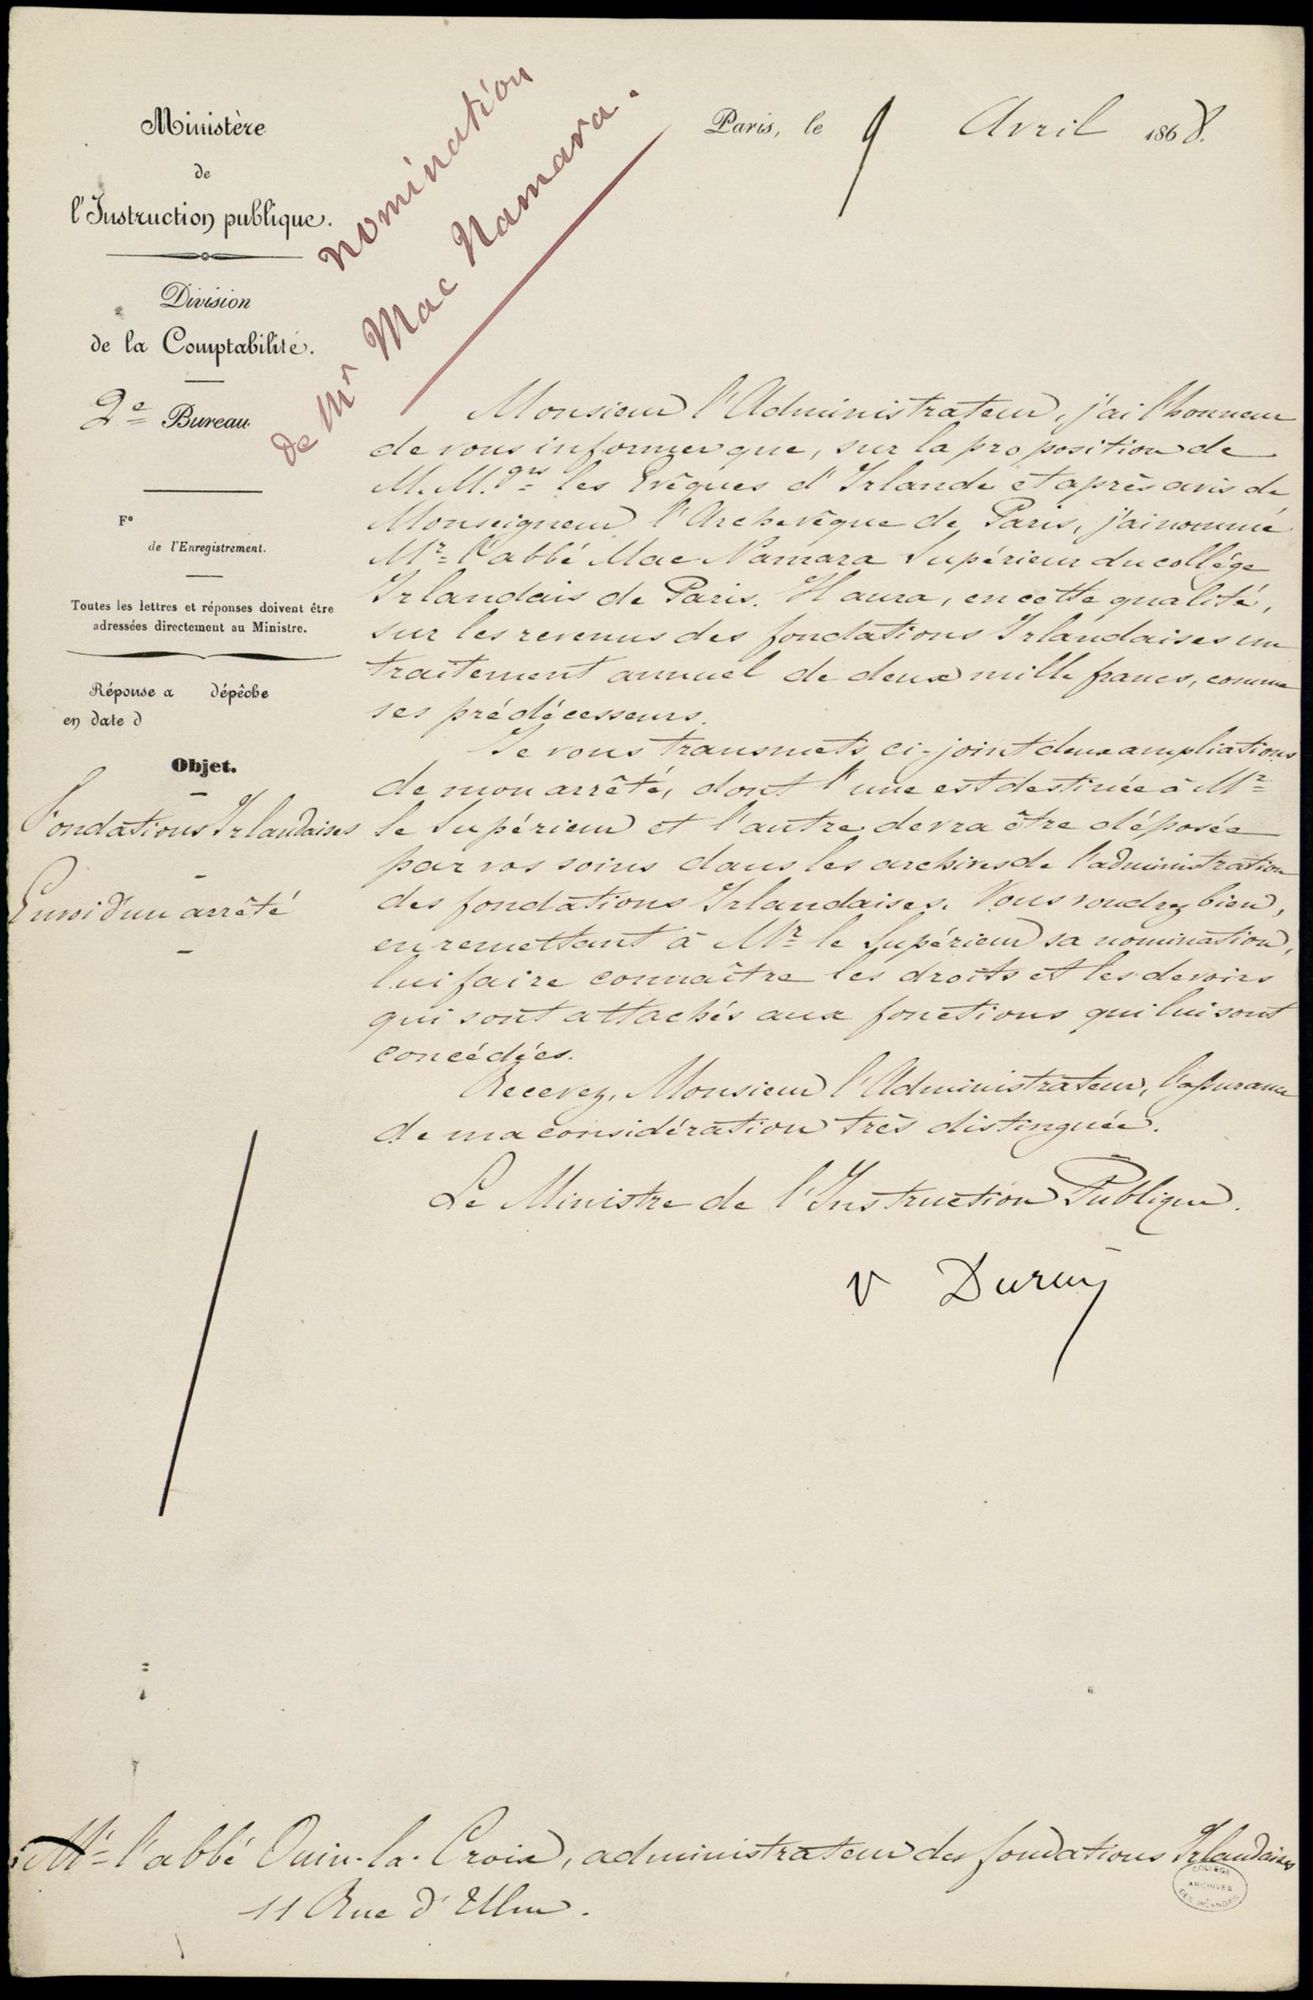 Ministère
de
l'Instruction publique.
Division
de la Comptabilité.
2e Bureau
Fo
de l'Enregistrement.
Toutes les lettres et réponses doivent être
adressées directement au Ministre.
Réponse a dépêche
en date d
Objet.
Fondations Irlandaises
Envoi d'un arrêté
nomination
de Mr Mac Namara.
Paris, le 9 Avril 1868.
Monsieur l'Administrateur, j'ai l'honneur
de vous informer que, sur la proposition de
M.M.grs les Evêques d'Irlande et après avis de
Monseigneur l'Archevêque de Paris, j'ai nommé
Mr l'abbé Mac Namara Supérieur du collége
Irlandais de Paris. Il aura, en cette qualité,
sur les revenus des fondations Irlandaises un
traitement annuel de deux mille francs, comme
ses prédécesseurs.
Je vous transmets ci-joint deux ampliations
de mon arrêté, dont l'une est destinée à Mr
le Supérieur et l'autre devra être déposée
par vos soins dans les archives de l'administration
des fondations Irlandaises. Vous voudrez bien,
en remettant à Mr le Supérieur sa nomination,
lui faire connaître les droits et les devoirs
qui sont attachés aux fonctions qui lui sont
concédées.
Recevez, Monsieur l'Administrateur, l'assurance
de ma considération très distinguée.
Le Ministre de l'Instruction Publique.
V Duruy
Mr l'abbé Ouin-la-Croix, administrateur des fondations Irlandaises
11 Rue d'Ulm.
COLLÈGE
ARCHIVES
DES IRLANDAIS